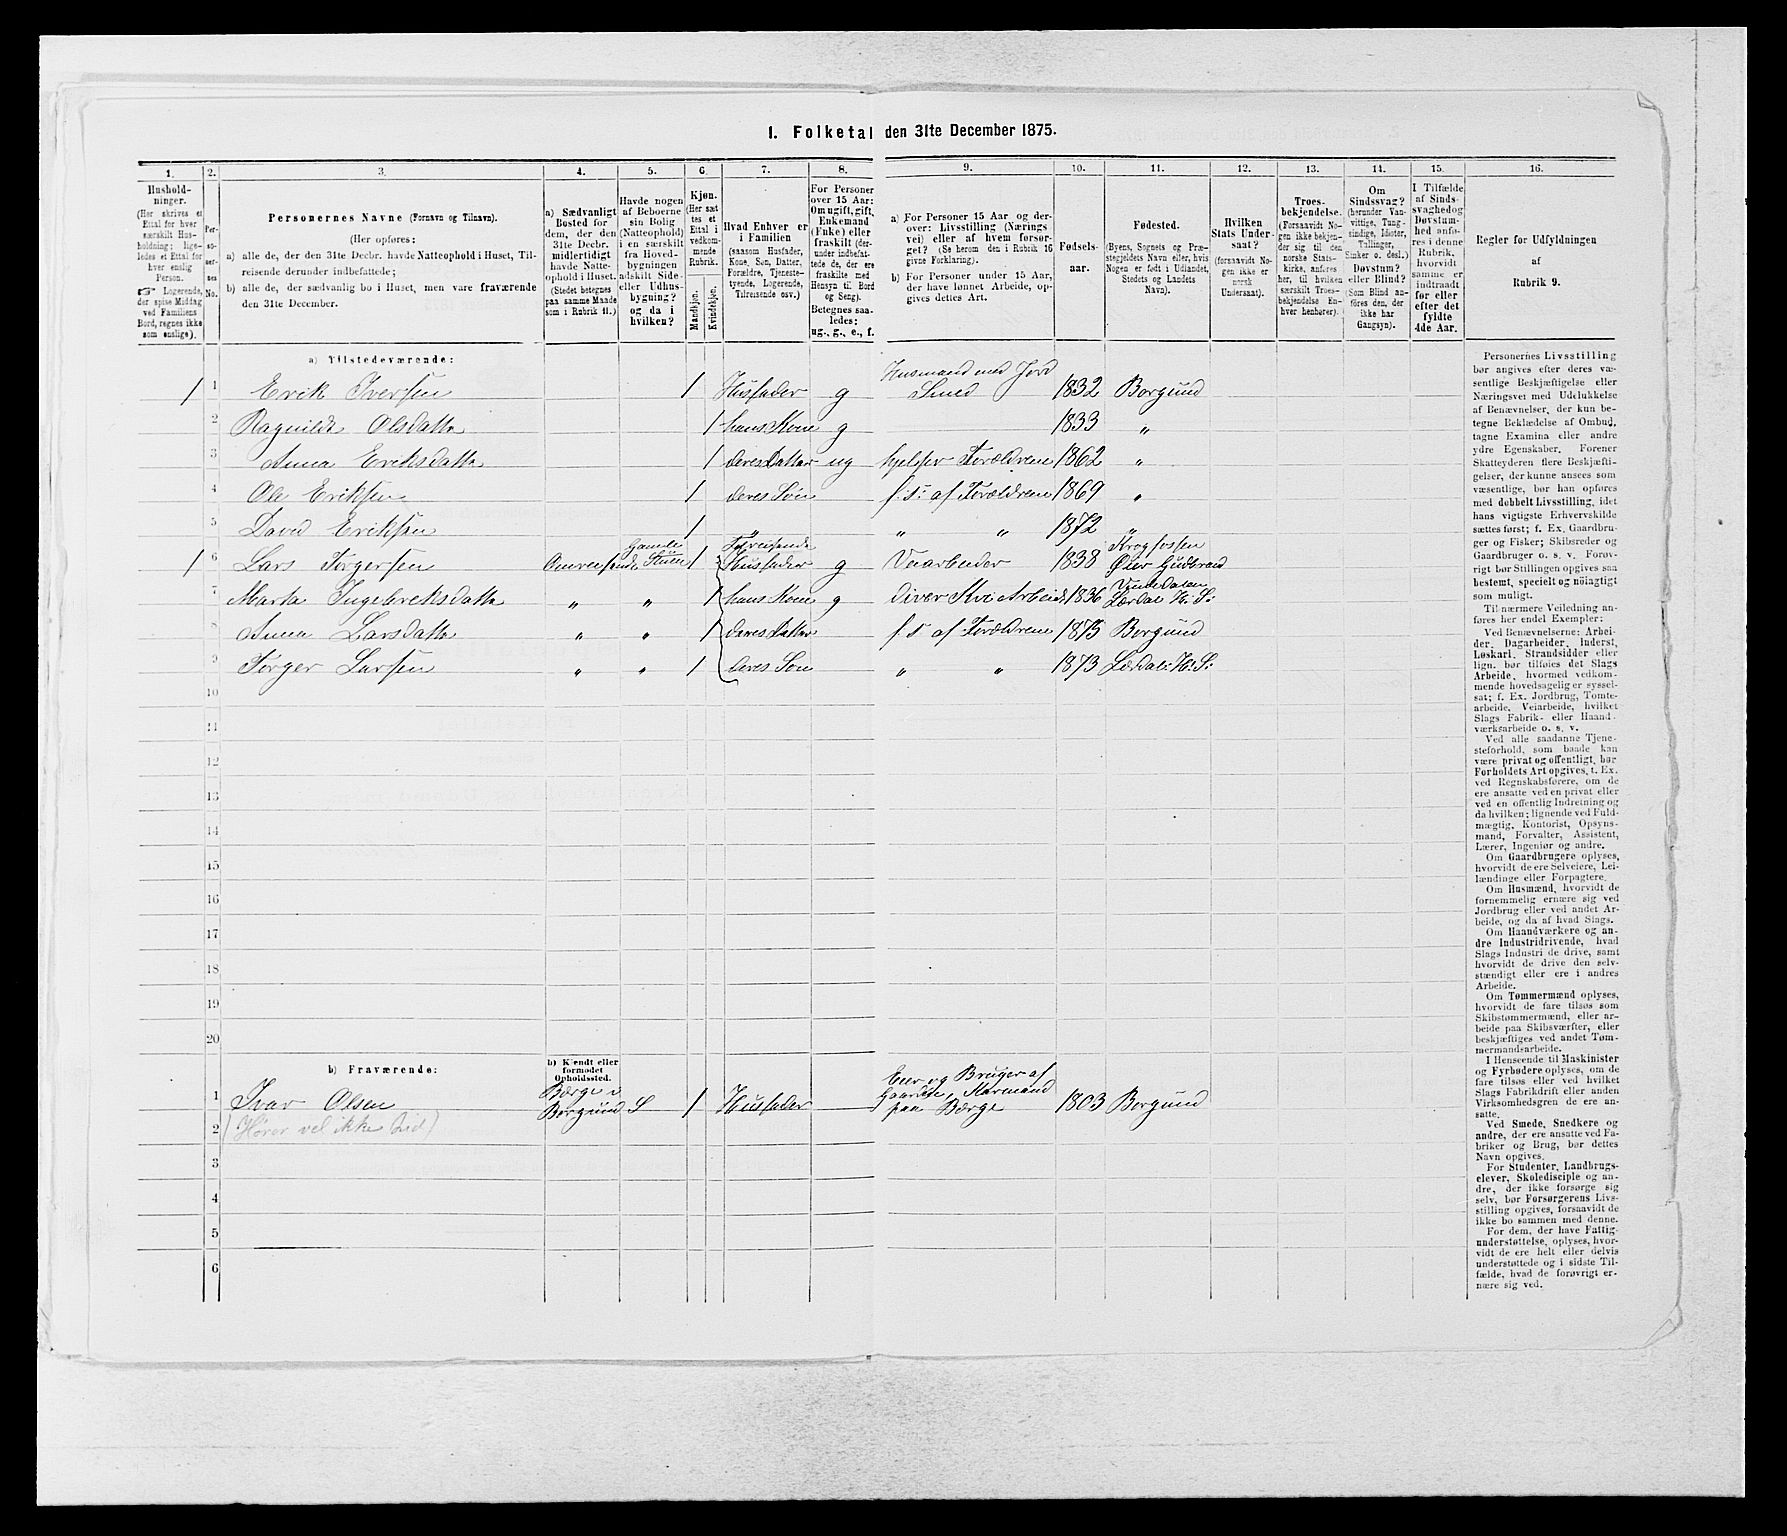 I. Folketal den 31te December 1875.
1. 2. 3. 4. 5. 6. 7. 8. 9. 10. 11. 12. 13. 14. 15. 16.
Hushold-
ninger.
(Her skrives et
Ettal for hver
særskilt Hus-
holdning; lige-
ledes et Ettal for
hver enslig
Person.
☞ Logerende,
der spise Middag
ved Familiens
Bord, regnes ikke
som enslige).
Per-
so-
ner-
nes
No.
Personernes Navne (Fornavn og Tilnavn).
(Her opføres:
a) alle de, der den 31te Decbr. havde Natteophold i Huset, Til-
reisende derunder indbefattede;
b) alle de, der sædvanlig bo i Huset, men vare fraværende
den 31te December.
a) Sædvanligt
Bosted for
dem, der den
31te Decbr.
midlertidigt
havde Natte-
ophold i Huset.
(Stedet betegnes
paa samme Maade
som i Rubrik 11.)
Havde nogen
af Beboerne
sin Bolig
(Natteophold)
i en særskilt
fra Hoved-
bygningen
adskilt Side-
eller Udhus-
bygning?
og da i
hvilken?
Kjøn.
(Her sæt
tes et
Ettal i
vedkom-
mende
Rubrik.
Mandkjøn.
Kvindekjøn.
Hvad Enhver er
i Familien
(saasom Husfader,
Kone, Søn, Datter,
Forældre, Tjeneste-
tyende, Logerende,
Tilreisende osv.)
For Personer
over 15 Aar:
Om ugift, gift,
Enkemand
(Enke) eller
fraskilt (der-
under indbefat-
tede de, der ere
fraskilte med
Hensyn til Bord
og Seng).
Betegnes saa-
ledes:
ug., g., e., f.
a) For Personer 15 Aar og der-
over: Livsstilling (Nærings
vei) eller af hvem forsør-
get? (Se herom den i Rubrik 16
givne Forklaring).
b) For Personer under 15 Aar,
der have lønnet Arbeide, op-
gives dettes Art.
Fødsels-
aar.
Fødested.
(Byens, Sognets og Præ-
stegjeldets Navn eller, hvis
Nogen er født i Udlandet,
Stedets og Landets
Navn).
Hvilken
Stats Under-
saat?
(forsaavidt No-
gen ikke er
norsk
Undersaat).
Troes-
bekjendelse.
(Forsaavidt No-
gen ikke bekjen-
der sig til den
norske Stats-
kirke, anføres
her, til hvilken
særskilt Troes-
bekjendelse En-
hver henhører).
Om
Sindssvag?
(herunder Van-
vittige, Tung-
sindige, Idioter,
Tullinger,
Sinker o. desl.)
Døvstum?
eller Blind?
(Som Blind an-
føres den, der
ikke har
Gangsyn).
I Tilfælde
af Sinds-
svaghed og
Døvstum-
hed anfø-
res i denne
Rubrik,
hvorvidt
samme er
indtraadt
før eller
efter det
fyldte
4de Aar.
Regler for Udfyldningen
af
Rubrik 9.
a) Tilstedeværende:
1 1 Erik Iversen 1 Husfader g Husmand med Jord
Smed 1832 Borgund
2 Ragnilde Olsdatter 1 hans Kone g 1833 "
3 Anna Eriksdatter 1 deres Datter ug hjelper Forældrene 1862 "
4 Ole Eriksen 1 deres Søn f. s: af Forældrene 1869 "
5 David Eriksen 1 " " " 1872 "
1 6 Lars Torgersen Omreisende Gamle
Stuen 1 Husfader g Veiarbeider 1838 Krogfossen
Øier Gudbrand
7 Marta Ingebrektsdatter " " 1 hans Kone g 1836 Lærdal H: S:
8 Anna Larsdatter " " 1 deres Datter f. s af Forældrene 1875 Borgund
9 Torger Larsen " " 1 deres Søn " " 1873 Lærdal: H: S:
10
11
12
13
14
15
16
17
18
19
20
b) Fraværende:
b) Kjendt eller
formodet
Opholdssted.
1 Ivar Olsen Børge i
Borgund S 1 Husfader Eier og Bruger af
Gaarden, Kaarmand
paa Børge 1803 Borgund
2 (Hører vel ikke hid)
3
4
5
6
Personernes Livsstilling
bør angives efter deres væ-
sentlige Beskjæftigelse eller
Næringsvei med Udelukkelse
af Benævnelser, der kun be-
tegne Beklædelse af Ombud,
tagne Examina eller andre
ydre Egenskaber. Forener
Skatteyderen flere Beskjæfti-
gelser, der kunne ansees som
væsentlige, bør han opføres
med dobbelt Livsstilling, idet
hans vigtigste Erhvervskilde
sættes først; f. Ex. Gaardbru-
ger og Fisker; Skibsreder og
Gaardbruger o. s. v. Forøv-
rigt bør Stillingen opgives saa
bestemt, specielt og nöiagtigt
som muligt.
Til nærmere Veiledning an-
føres her endel Exempler:
Ved Benævnelserne: Arbei-
der, Dagarbeider, Inderst,
Løskarl, Strandsidder eller
lign. bør tilføies det Slags
Arbeide, hvormed vedkom-
mende hovedsagelig er syssel-
sat; f. Ex. Jordbrug, Tomte-
arbeide, Veiarbeide, hvilket
Slags Fabrik- eller Haand-
værksarbeide o. s. v.
Ved alle saadanne Tjene-
steforhold, som baade kan
være privat og offentligt, bør
Forholdets Art opgives, t. Ex.
ved Regnskabsførere, om de
ere ansatte ved en privat eller
ved en offentlig Indretning og
da hvilken; lignende ved Fuld-
mægtig, Kontorist, Opsyns-
mand, Forvalter, Assistent,
Lærer, Ingeniør og andre.
Om Gaardbrugere oplyses,
hvorvidt de ere Selveiere, Lei-
lændinge eller Forpagtere.
Om Husmænd, hvorvidt de
fornemmelig ernære sig ved
Jordbrug eller ved andet Ar-
beide, og da af hvad Slags.
Om Haandværkere og an-
dre Industridrivende, hvad
Slags Industri de drive, samt
hvorvidt de drive den selv-
stændigt eller ere i andres
Arbeide.
Om Tømmermænd oplyses,
hvorvidt de fare tilsøs som
Skibstømmermænd, eller ar-
beide paa Skibsværfter, eller
beskjæftiges ved andet Tøm-
mermandsarbeide.
I Henseende til Maskinister
og Fyrbødere oplyses, om de
fare tilsøs eller ved hvilket
Slags Fabrikdrift eller anden
Virksomhedsgren de ere an-
satte.
Ved Smede, Snedkere og
andre, der ere ansatte ved Fa-
briker og Brug, bør dettes
Navn opgives.
For Studenter, Landbrugs-
elever, Skoledisciple og an-
dre, der ikke forsørge sig
selv, bør Forsørgerens Livs-
stilling opgives, forsaavidt de
ikke bo sammen med denne.
For dem, der have Fattig-
understøttelse, oplyses, hvor-
vidt de ere helt eller delvis
understøttede og i sidste Til-
fælde, hvad de forøvrigt er-
nære sig ved.